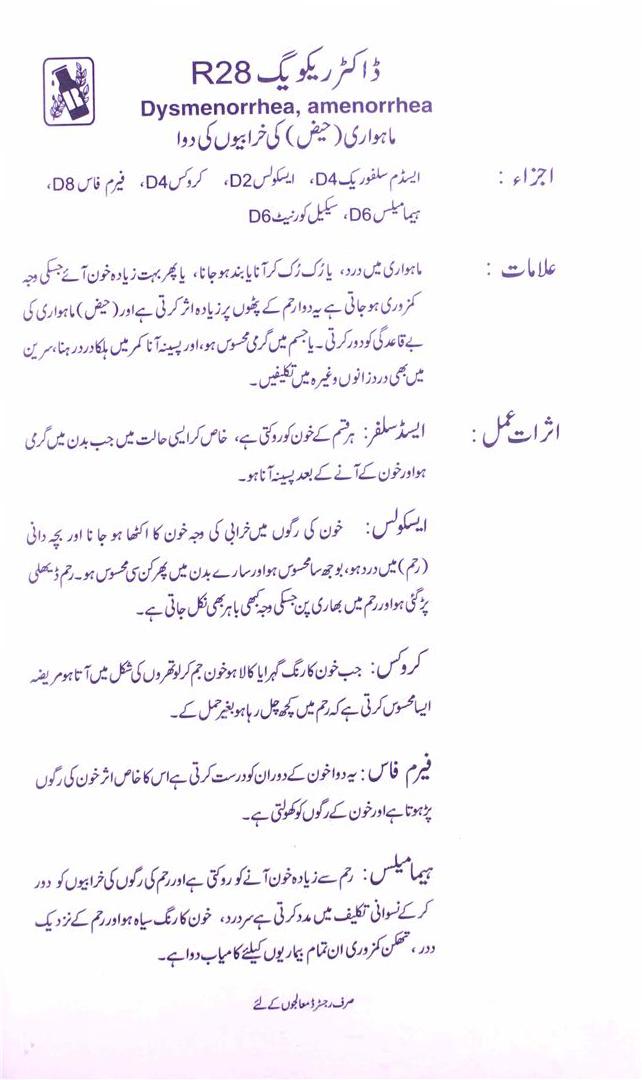 ڈاکٹر ریکویگ R28
Dysmenorrhea, amenorrhea
ماہواری (حیض) کی خرابیوں کی دوا
اجزاء : ایسڈم سلفوریک D4، ایسکولس D2، کروکس D4، فیرم فاس D8،
ہیما میلس D6، سیکیل کورنیٹ D6
علامات : ماہواری میں درد، یا رُک رُک کر آنا یا بند ہو جانا، یا پھر بہت زیادہ خون آئے جسکی وجہ
کمزوری ہو جاتی ہے یہ دوا رحم کے پٹھوں پر زیادہ اثر کرتی ہے اور (حیض) ماہواری کی
بے قاعدگی کو دور کرتی۔ یا جسم میں گرمی محسوس ہو، اور پسینہ آنا کمر میں ہلکا درد رہنا، سرین
میں بھی درد زانوں وغیرہ میں تکلیفیں۔
اثرات عمل : ایسڈ سلفر: ہر قسم کے خون کو روکتی ہے، خاص کر ایسی حالت میں جب بدن میں گرمی
ہو اور خون کے آنے کے بعد پسینہ آنا ہو۔
ایسکولس: خون کی رگوں میں خرابی کی وجہ خون کا اکٹھا ہو جا نا اور بچہ دانی
(رحم) میں درد ہو، بوجھ سا محسوس ہو اور سارے بدن میں پھر کن سی محسوس ہو۔ رحم ڈیھلی
پڑ گئی ہو اور رحم میں بھاری پن جسکی وجہ کبھی باہر بھی نکل جاتی ہے۔
کروکس: جب خون کا رنگ گہرا یا کالا ہو خون جم کر لوتھروں کی شکل میں آتا ہو مریضہ
ایسا محسوس کرتی ہے کہ رحم میں کچھ چل رہا ہو بغیر حمل کے۔
فیرم فاس : یہ دوا خون کے دوران کو درست کرتی ہے اس کا خاص اثر خون کی رگوں
پڑ ہوتا ہے اور خون کے رگوں کو کھولتی ہے۔
ہیما میلس: رحم سے زیادہ خون آنے کو روکتی ہے اور رحم کی رگوں کی خرابیوں کو دور
کر کے نسوانی تکلیف میں مدد کرتی ہے سر درد، خون کا رنگ سیاہ ہو اور رحم کے نزدیک
ددر، تھکن کمزوری ان تمام بیماریوں کیلئے کامیاب دوا ہے۔
صرف رجسٹرڈ معالجوں کے لئے